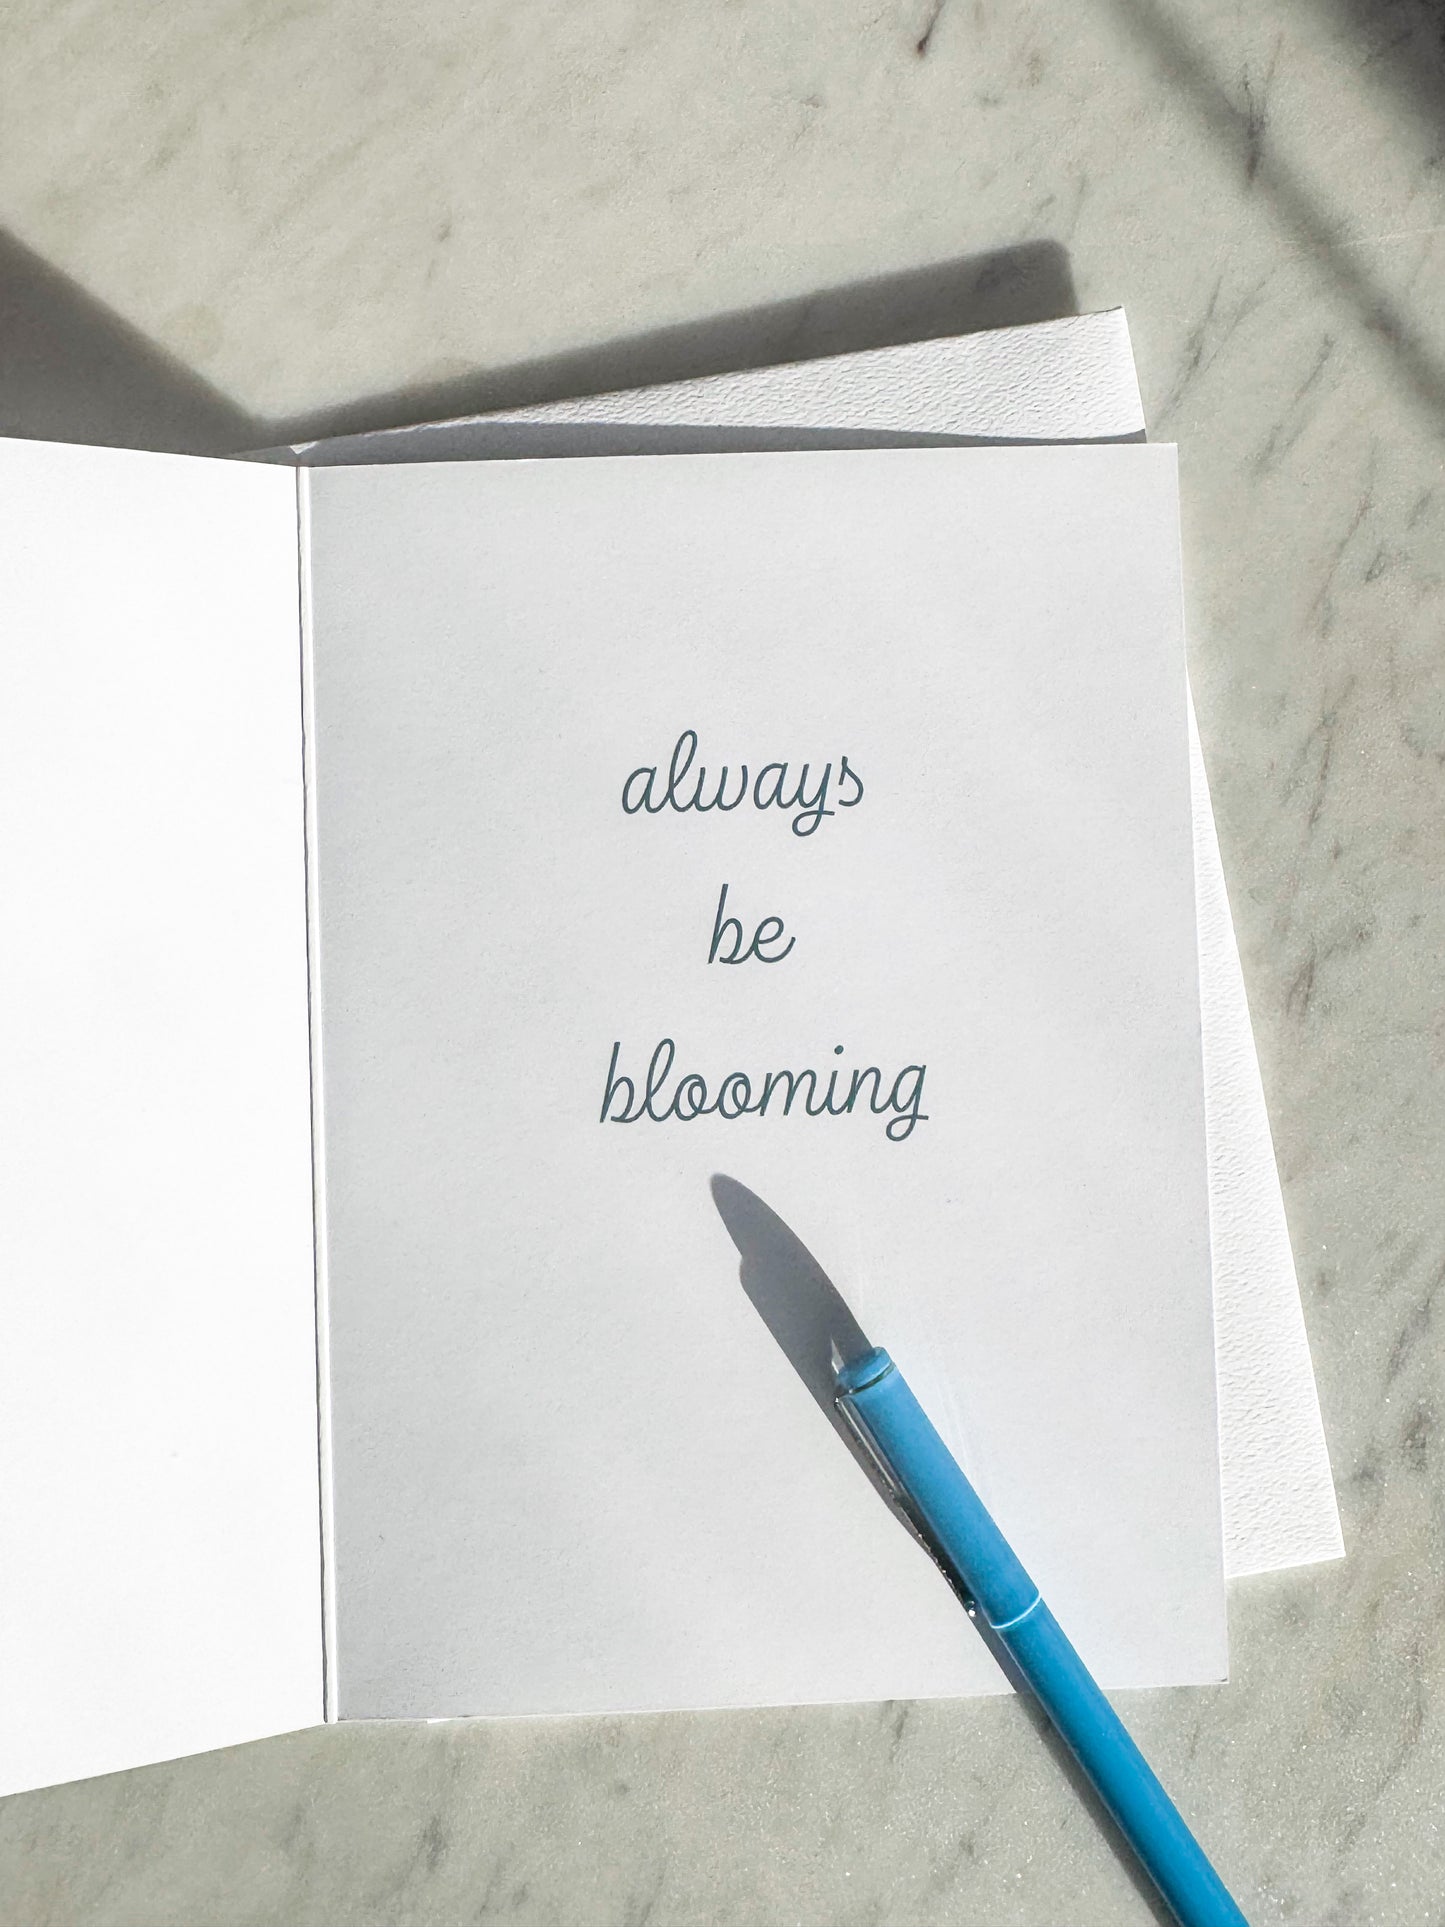 always
be
blooming